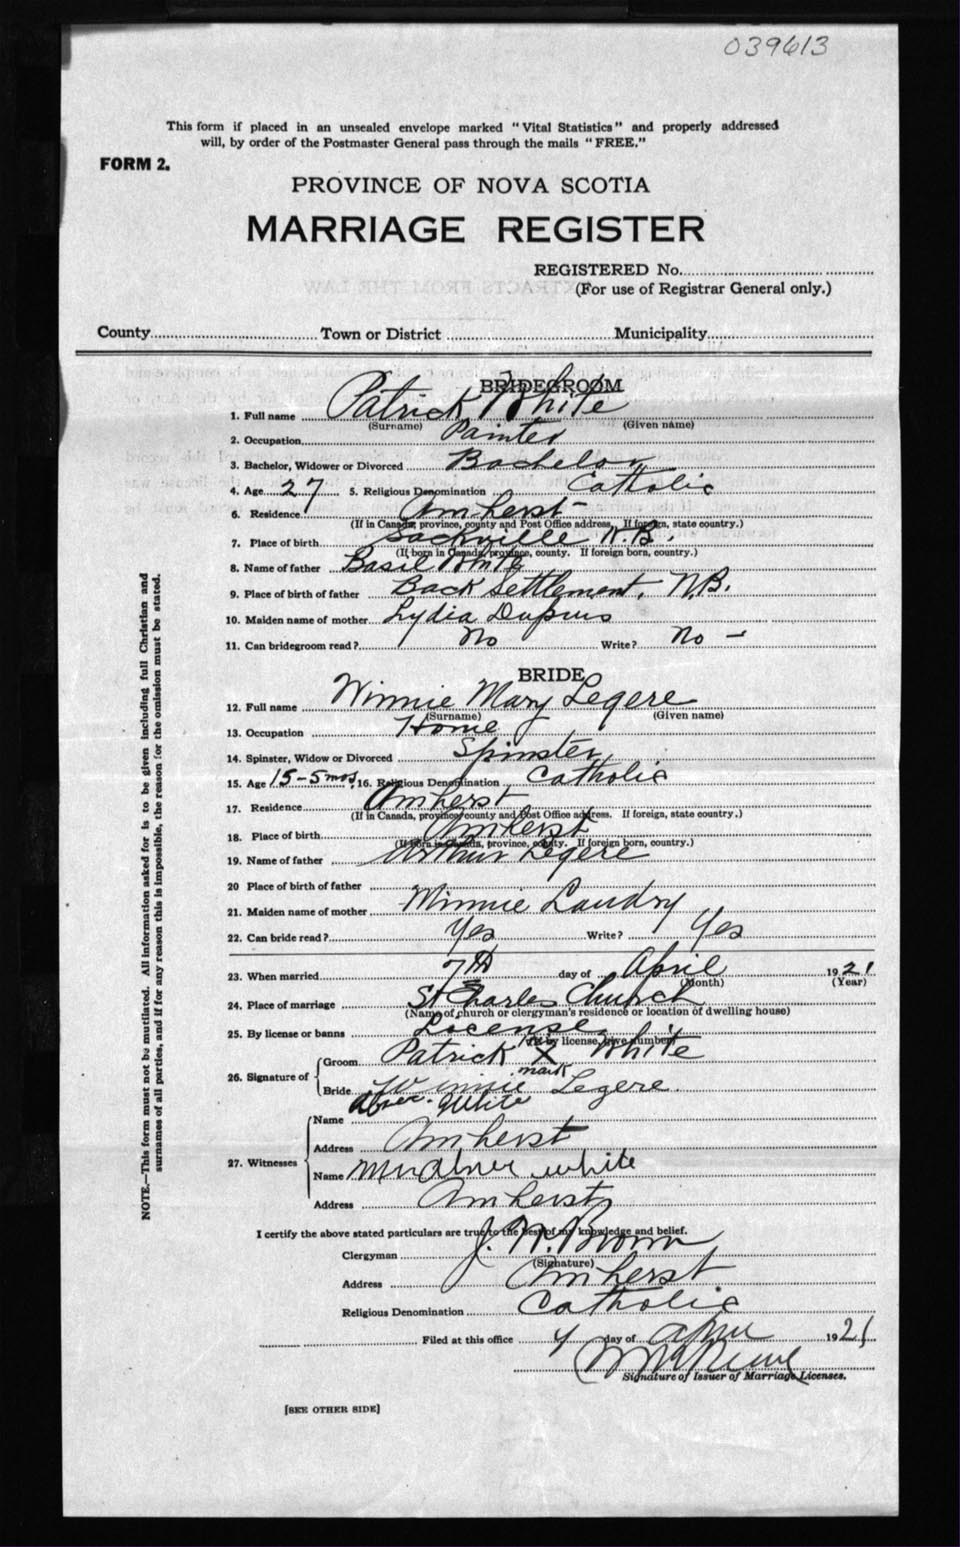 039613
This form if placed in an unsealed envelope marked "Vital Statistics" and properly addressed
will, by order of the Postmaster General pass through the mails "FREE."
FORM 2.
PROVINCE OF NOVA SCOTIA
MARRIAGE REGISTER
REGISTERED No.
(For use of Registrar General only.)
County Town or District Municipality
BRIDEGROOM
1. Full name Patrick White
(Surname) (Given name)
2. Occupation Painter
3. Bachelor, Widower or Divorced Bachelor
4. Age 27 5. Religious Denomination Catholic
6. Residence Amherst
(If in Canada, province, county and Post Office address. If foreign, state country.)
7. Place of birth Sackville N.B.
(If born in Canada, province, county. If foreign born, country.)
8. Name of father Basil White
9. Place of birth of father Back Settlement, N.B.
10. Maiden name of mother Lydia Dupuis
11. Can bridegroom read? No Write? No -
BRIDE
12. Full name Winnie Mary Legere
(Surname) (Given name)
13. Occupation Home
14. Spinster, Widow or Divorced Spinster
15. Age 15-5 mos. 16. Religious Denomination Catholic
17. Residence Amherst
(If in Canada, province, county and Post Office address. If foreign, state country.)
18. Place of birth Amherst
(If born in Canada, province, county. If foreign born, country.)
19. Name of father Arthur Legere
20 Place of birth of father
21. Maiden name of mother Minnie Landry
22. Can bride read? Yes Write? Yes
23. When married 7th day of April 1921
(Month) (Year)
24. Place of marriage St Charles Church
(Name of church or clergyman's residence or location of dwelling house)
25. By license or banns License
(If by license, give number)
26. Signature of Groom Patrick X White
mark
Bride Winnie Legere
27. Witnesses Name Abner White
Address Amherst
Name Mrs Abner White
Address Amherst
I certify the above stated particulars are true to the best of my knowledge and belief.
Clergyman J. N. Brown
(Signature)
Address Amherst
Religious Denomination Catholic
Filed at this office day of April 1921
Signature of Issuer of Marriage Licenses.
[SEE OTHER SIDE]
NOTE.—This form must not be mutilated. All information asked for is to be given including full Christian and
surnames of all parties, and if for any reason this is impossible, the reason for the omission must be stated.